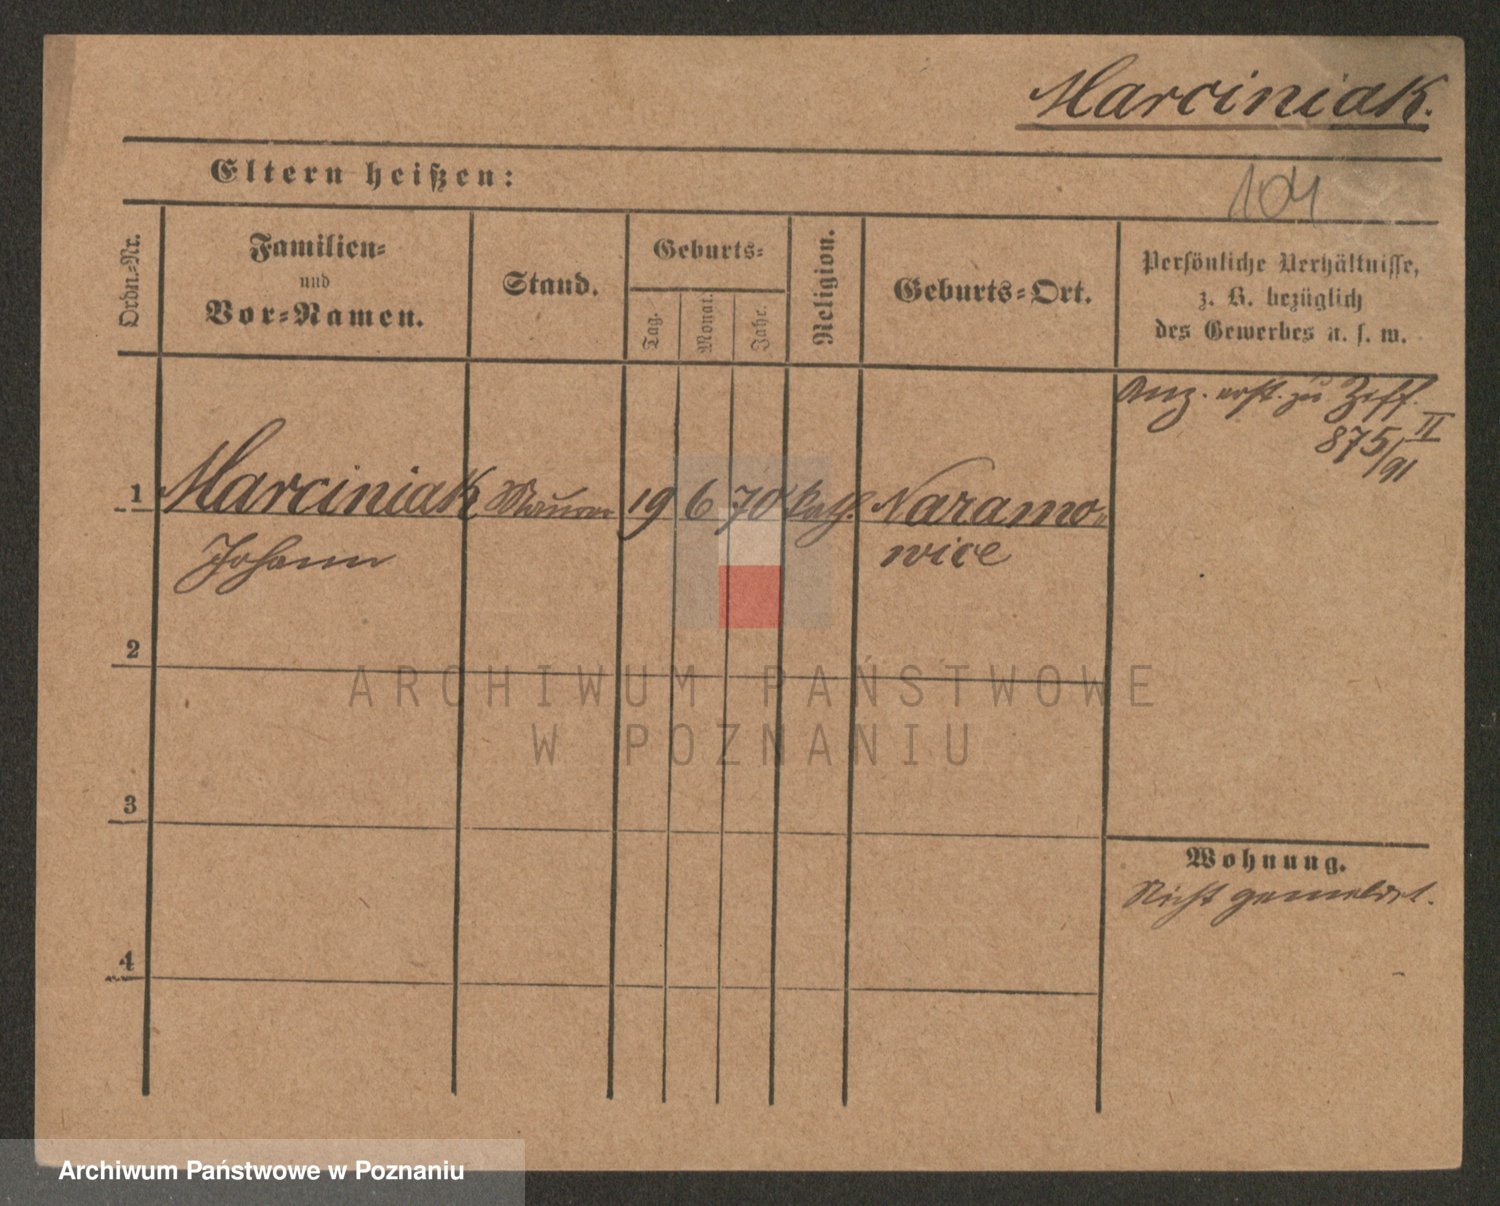 Marciniak.
Eltern heißen:
104
Ordn.-Nr.
Familien-
und
Vor-Namen.
Stand.
Geburts-
Tag.
Monat.
Jahr.
Religion.
Geburts-Ort.
Persönliche Verhältnisse,
z. B. bezüglich
des Gewerbes u. s. w.
Anz. erst. zu
875/91 II
1 Marciniak Maurer 19 6 70 kath. Naramo-
Johann wice
2
3
4
Wohnung.
Nicht gemeldet.
ARCHIWUM PAŃSTWOWE
W POZNANIU
Archiwum Państwowe w Poznaniu